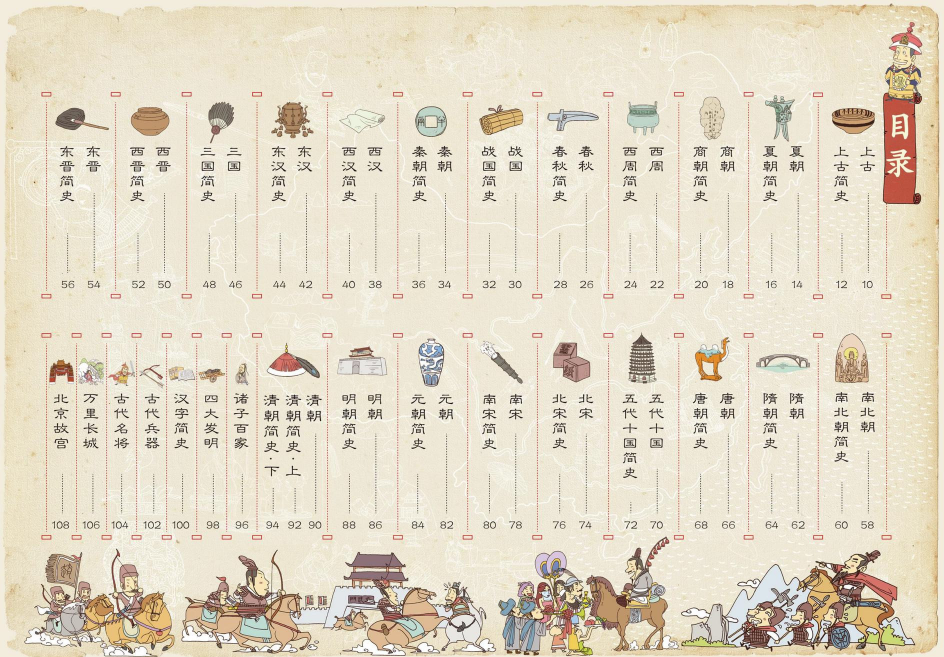 目录
上古
10
上古简史
12
夏朝
14
夏朝简史
16
商朝
18
商朝简史
20
西周
22
西周简史
24
春秋
26
春秋简史
28
战国
30
战国简史
32
秦朝
34
秦朝简史
36
西汉
38
西汉简史
40
东汉
42
东汉简史
44
三国
46
三国简史
48
西晋
50
西晋简史
52
东晋
54
东晋简史
56
南北朝
58
南北朝简史
60
隋朝
62
隋朝简史
64
唐朝
66
唐朝简史
68
五代十国
70
五代十国简史
72
北宋
74
北宋简史
76
南宋
78
南宋简史
80
元朝
82
元朝简史
84
明朝
86
明朝简史
88
清朝
90
清朝简史·上
92
清朝简史·下
94
诸子百家
96
四大发明
98
汉字简史
100
古代兵器
102
古代名将
104
万里长城
106
北京故宫
108